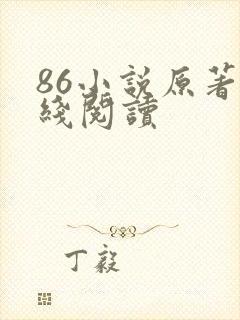 86小説原著
綫閱讀
丁毅